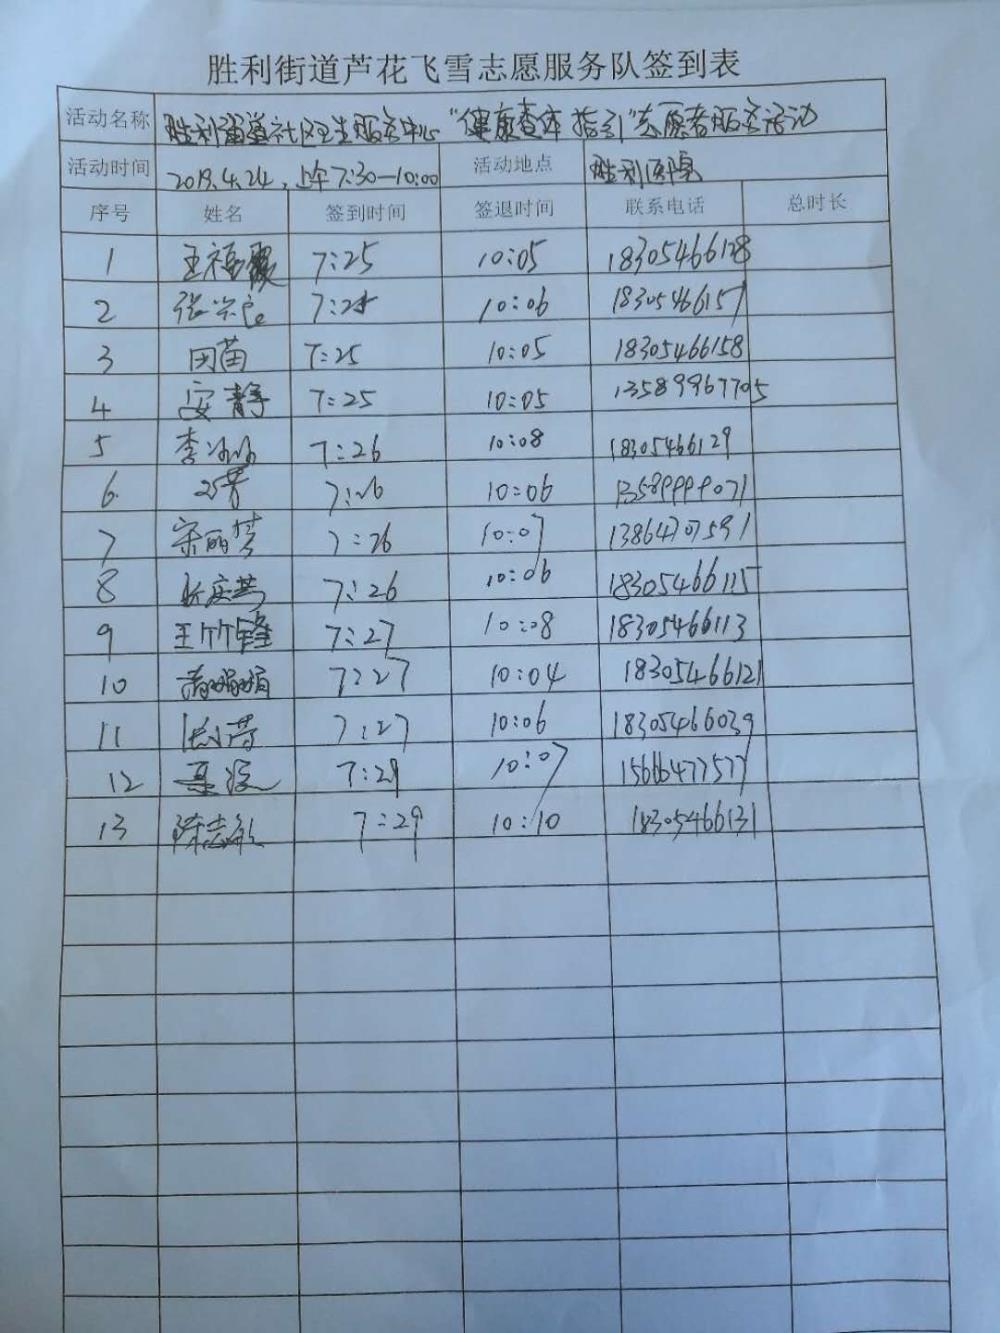 胜利街道芦花飞雪志愿服务队签到表
活动名称 胜利街道社区卫生服务中心"健康查体指引"志愿者服务活动
活动时间 2019.4.24,上午7:30—10:00 活动地点 胜利医院
序号 姓名 签到时间 签退时间 联系电话 总时长
1 王福霞 7:25 10:05 18305466128
2 张兴良 7:25 10:06 18305466157
3 田苗 7:25 10:05 18305466158
4 安静 7:25 10:05 13589967705
5 李冰冰 7:26 10:08 18305466129
6 7:26 10:06 13589999071
7 宋丽梦 7:26 10:07 13864707591
8 7:26 10:06 18305466115
9 王竹锋 7:27 10:08 18305466113
10 7:27 10:04 18305466121
11 7:27 10:06 18305466039
12 7:29 10:07 15666477577
13 陈志敏 7:29 10:10 18305466131